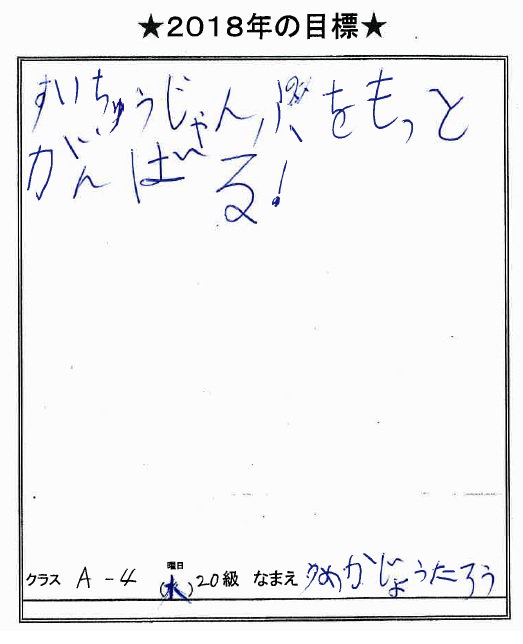 ★2018年の目標★
すいちゅうじゃんぷをもっと
がんばる!
クラス A-4 曜日(水)20級 なまえ かじょうたろう